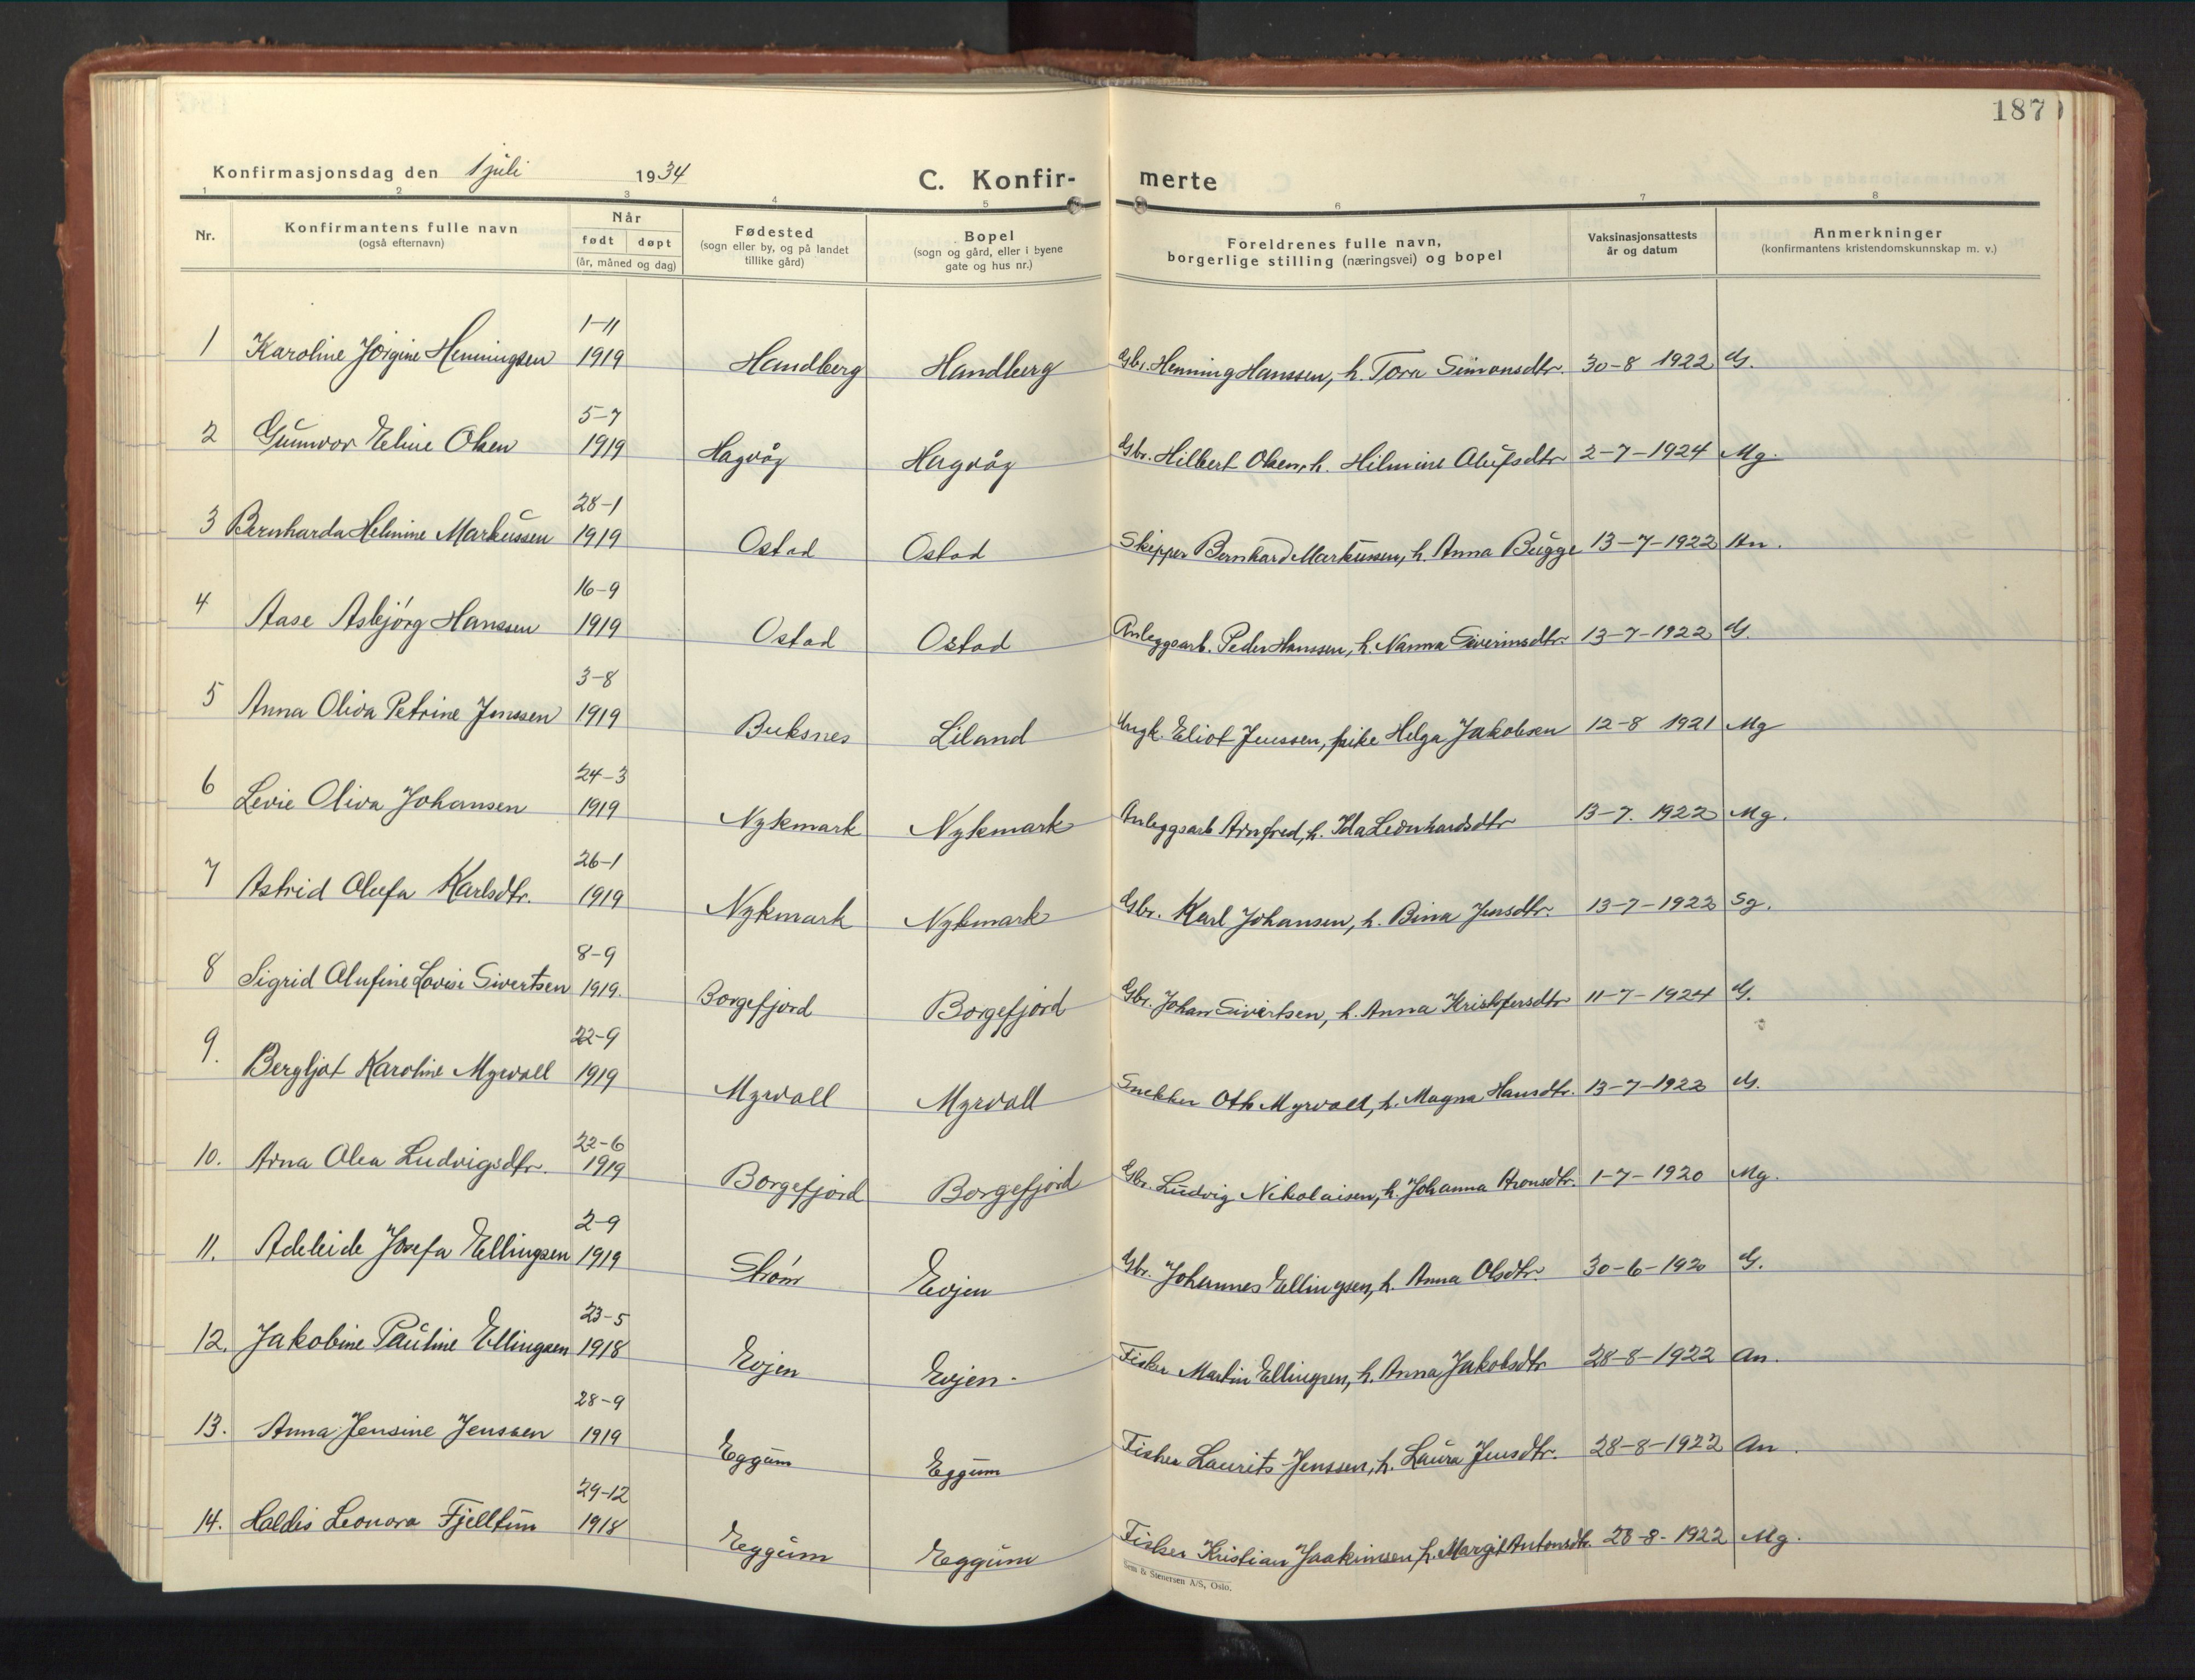 187
Konfirmasjonsdag den 1 juli 1934
C. Konfir- merte
1 2 3 4 5 6 7 8
Nr.
Konfirmantens fulle navn
(også efternavn)
Når
født døpt
(år, måned og dag)
Fødested
(sogn eller by, og på landet
tillike gård)
Bopel
(sogn og gård, eller i byene
gate og hus nr.)
Foreldrenes fulle navn,
borgerlige stilling (næringsvei) og bopel
Vaksinasjonsattests
år og datum
Anmerkninger
(konfirmantens kristendomskunnskap m. v.)
1-11
1 Karoline Jørgine Henningsen 1919 Handberg Handberg Gbr. Henning Hanssen, h. Tora Simonsdtr. 30-8 1922 G.
5-7
2 Gunnvor Eline Olsen 1919 Hagvåg Hagvåg Gbr. Hilbert Olsen, h. Hilmine Olufsdtr 2-7-1924 Mg.
28-1
3 Bernharda Helmine Markussen 1919 Ostad Ostad Skipper Bernhard Markussen, h. Anna Bugge 13-7-1922 An.
16-9
4 Aase Asbjørg Hanssen 1919 Ostad Ostad Anleggsarb. Peder Hanssen, h. Nanna Siverinsdtr. 13-7-1922 G.
3-8
5 Anna Oliva Petrine Jenssen 1919 Buksnes Liland Ungk. Eliot Jenssen, pike Helga Jakobsen 12-8 1921 Mg
24-3
6 Levie Oliva Johansen 1919 Nykmark Nykmark Anleggsarb Arnfred, h. Ida Leonhardsdtr 13-7. 1922 Mg.
26-1
7 Astrid Olufa Karlsdtr. 1919 Nykmark Nykmark Gbr. Karl Johansen, h. Bina Jensdtr. 13-7-1922 Sg.
8-9
8 Sigrid Alufine Lovise Sivertsen 1919. Borgefjord Borgefjord Gbr. Johan Sivertsen, h. Anna Kristofersdtr 11-7-1924 G.
22-9
9. Bergljot Karoline Myrvoll 1919 Myrvoll Myrvoll Snekker Oth Myrvoll, h. Magna Hansdtr. 13-7-1922 G.
22-6
10. Arna Olea Ludvigsdtr. 1919 Borgefjord Borgefjord Gbr. Ludvig Nikolaisen, h. Johanna Aronsdtr. 1-7-1920 Mg.
2-9
11. Adeleide Josefa Ellingsen 1919 Strøm Evjen Gbr. Johannes Ellingsen, h. Anna Olsdtr. 30-6-1920 G.
23-5
12. Jakobine Pauline Ellingsen 1918 Evjen Evjen. Fisker Martin Ellingsen, h. Anna Jakobsdtr 28-8-1922 An.
28-9
13. Anna Jensine Jenssen 1919 Eggum Eggum Fisker Laurits Jenssen, h. Laura Jensdtr. 28-8-1922 An.
29-12
14. Haldis Leonora Fjelltun 1918 Eggum Eggum Fisker Kristian Joakimsen, h. Margit Antonsdtr. 28-8-1922 Mg.
Sem & Stenersen A/S, Oslo.